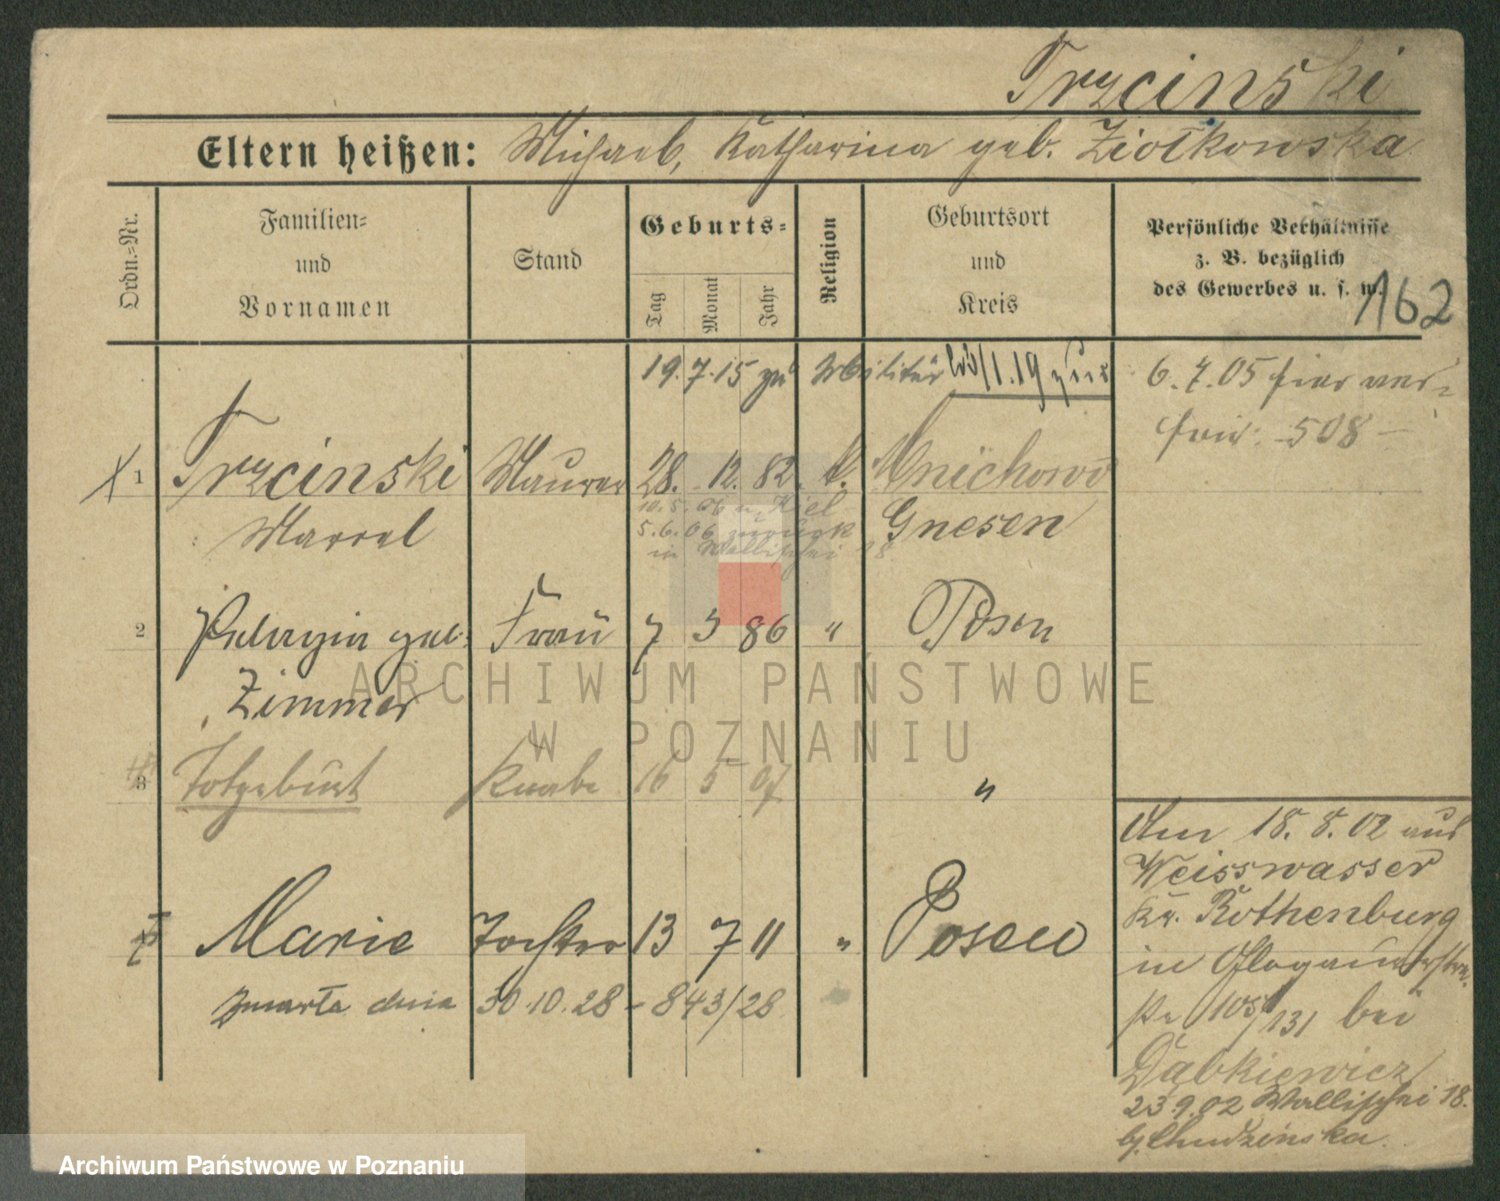 Trzcinski
Eltern heißen: Michael, Katharina geb. Ziołkowska
Ordn.=Nr.
Familien=
und
Vornamen
Stand
Geburts=
Tag
Monat
Jahr
Religion
Geburtsort
und
Kreis
Persönliche Verhältnisse
z. B. bezüglich
des Gewerbes u. s. w.
162
19. 7. 15 zu Militär 1.19
6. 7. 05 hier
508
1 Trzcinski Maurer 28. 12. 82. k. Mnichowo
Marcel Gnesen
10. 5. 06 n. Kiel
5. 6. 06 zurück
in Wallischei 18
2 Pelagia geb. Frau 7 5 86 " Posen
Zimmer
3 Totgeburt Knabe 16 5 07 "
Marie Tochter 13 7 11 " Posen
zmarła dnia 30. 10. 28 - 843/28
Am 18. 8. 02 aus
Weisswasser
Kr. Rothenburg
in Glogauerstr.
105/131 bei
Dąbkiewicz
23. 9. 02 Wallischei 18.
b. Chudzinska.
ARCHIWUM PAŃSTWOWE
W POZNANIU
Archiwum Państwowe w Poznaniu